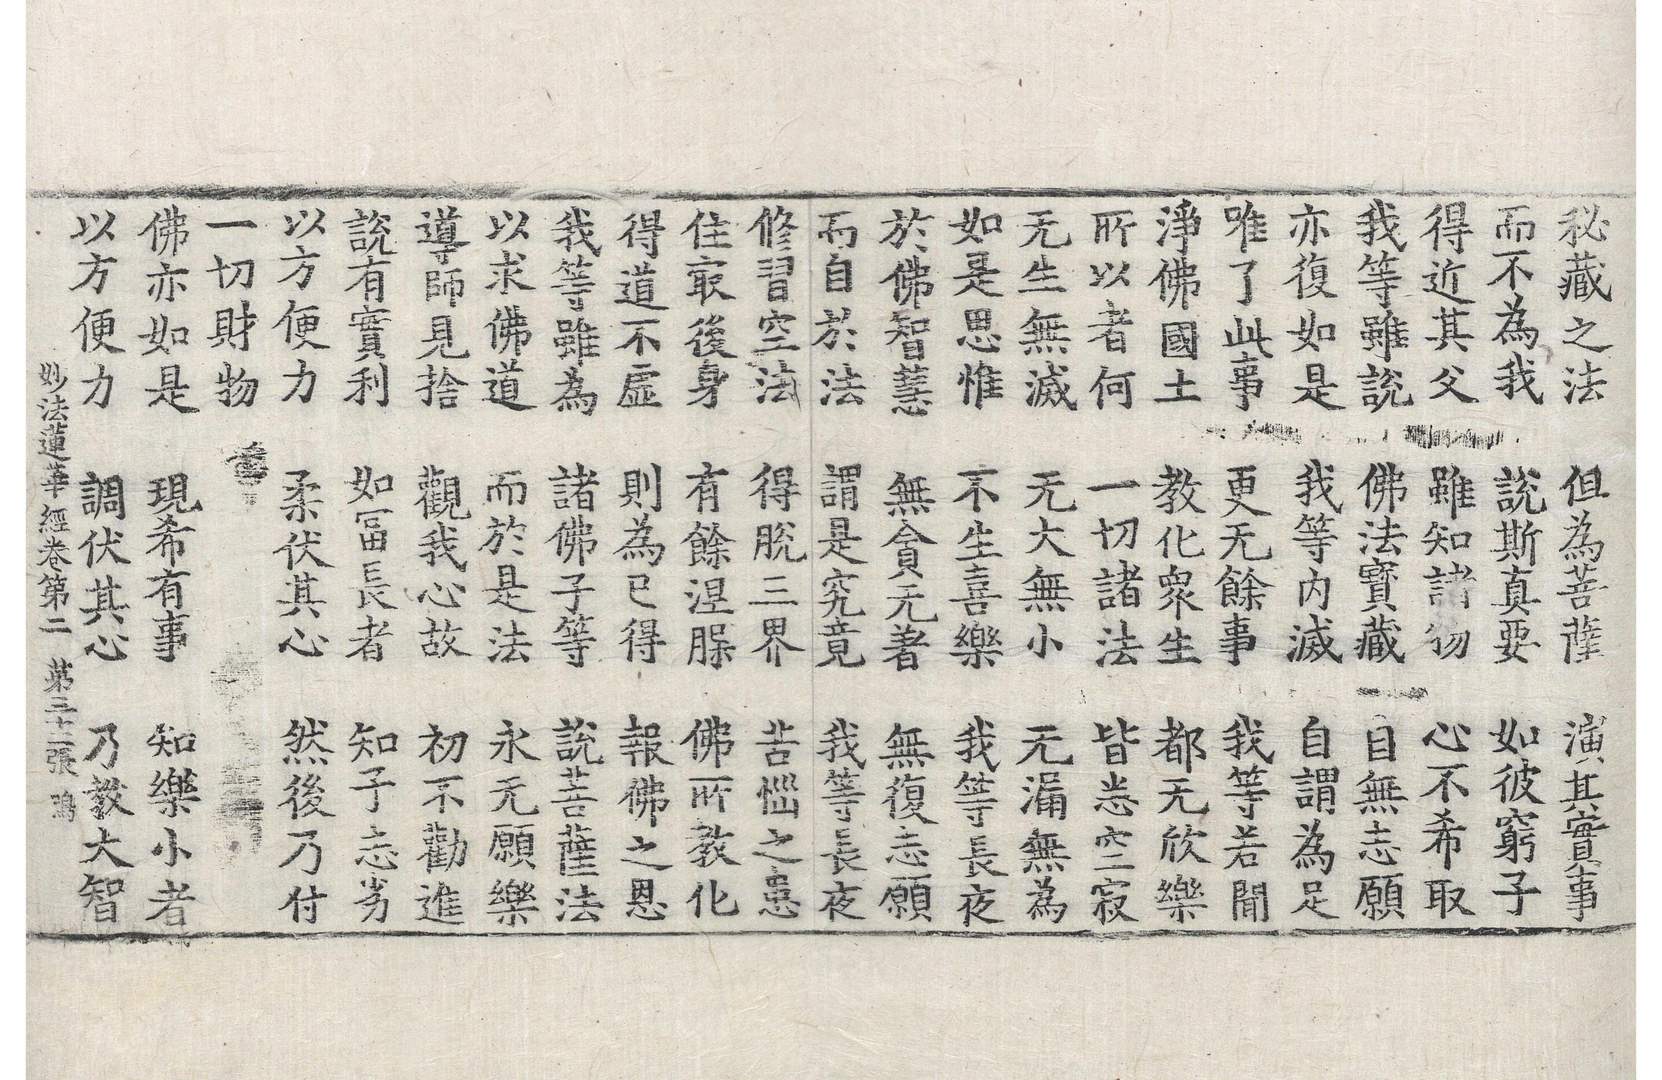 秘藏之法 但為菩薩 演其實事
而不為我 說斯真要 如彼窮子
得近其父 雖知諸物 心不希取
我等雖說 佛法寶藏 自無志願
亦復如是 我等内滅 自謂為足
唯了此事 更无餘事 我等若聞
淨佛國土 教化眾生 都无欣樂
所以者何 一切諸法 皆悉空寂
无生無滅 无大無小 无漏無為
如是思惟 不生喜樂 我等長夜
於佛智慧 無貪无著 無復志願
而自於法 謂是究竟 我等長夜
修習空法 得脫三界 苦惱之患
住最後身 有餘涅槃 佛所教化
得道不虛 則為已得 報佛之恩
我等雖為 諸佛子等 說菩薩法
以求佛道 而於是法 永无願樂
導師見捨 觀我心故 初不勸進
說有實利 如冨長者 知子志劣
以方便力 柔伏其心 然後乃付
一切財物
佛亦如是 現希有事 知樂小者
以方便力 調伏其心 乃教大智
妙法蓮華經卷第二 苐三十二張